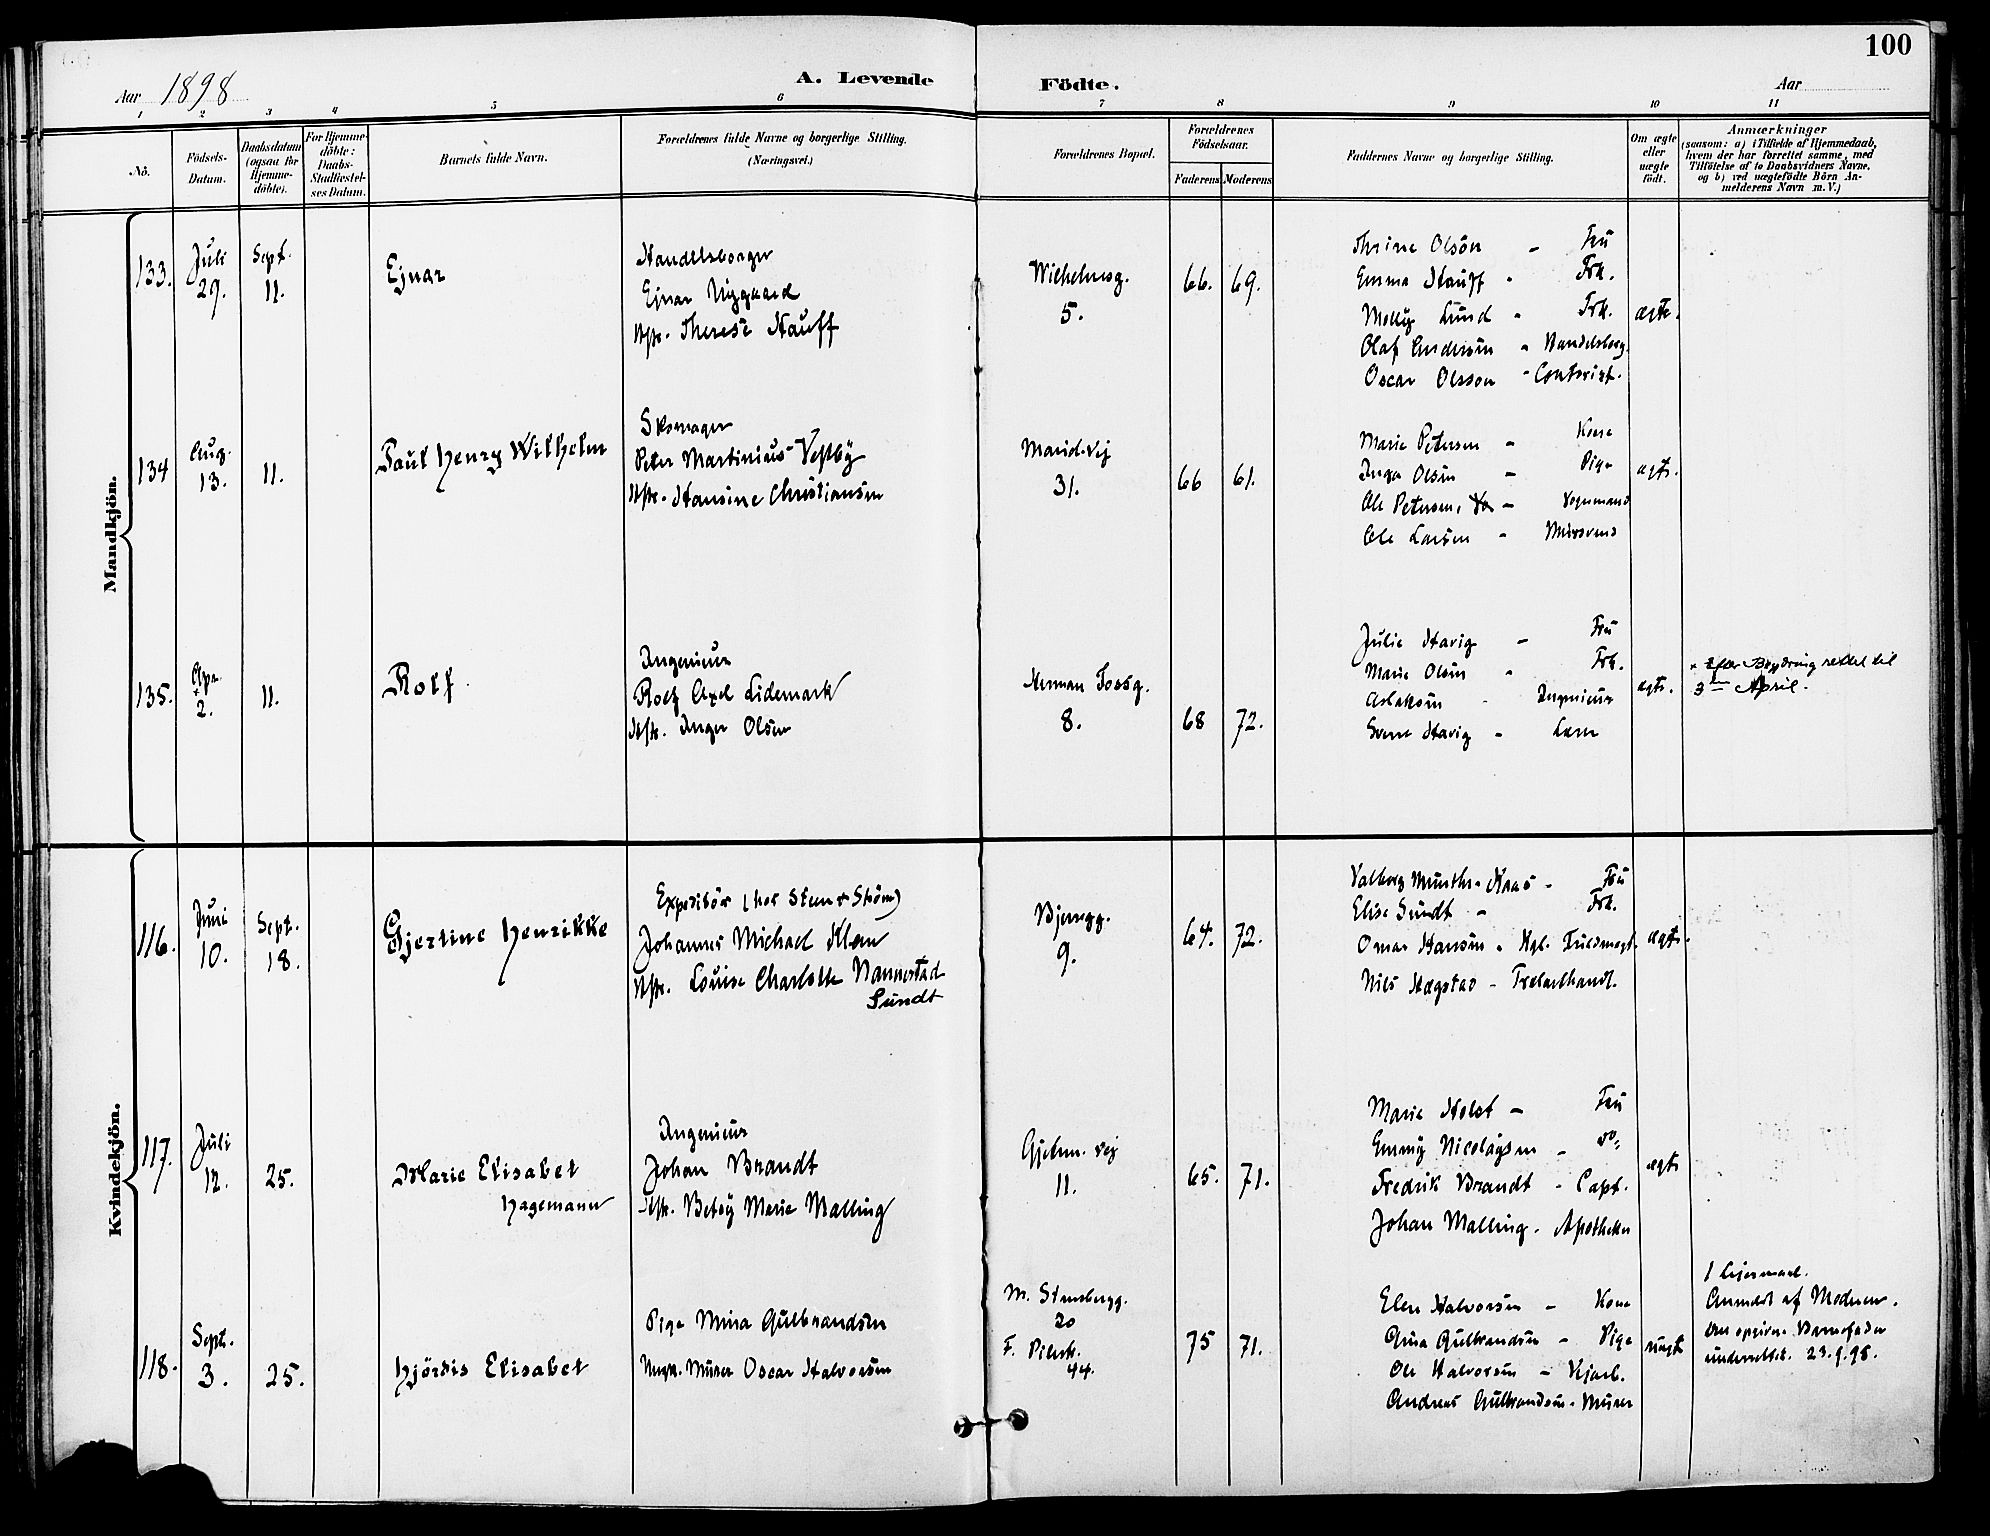 100
Aar 1898
A. Levende
Födte.
Aar
1 2 3 4 5 6 7 8 9 10 11
No.
Födsels-
Datum.
Daabsdatum
(ogsaa for
Hjemme-
döbte).
For Hjemme-
döbte:
Daabs-
Stadfæstel-
ses Datum.
Barnets fulde Navn.
Forældrenes fulde Navne og borgerlige Stilling.
(Næringsvei.)
Forældrenes Bopæl.
Forældrenes
Födselsaar.
Faderens
Moderens
Faddernes Navne og borgerlige Stilling.
Om ægte
eller
uægte
födt.
Anmærkninger
(saasom: a) i Tilfælde af Hjemmedaab,
hvem der har forrettet samme, med
Tilföielse af to Daabsvidners Navne,
og b) ved uægtefödte Börn An-
melderens Navn m. V.)
Mandkjön.
133.
Juli
29.
Sept.
11.
Ejnar
Handelsborger
Ejnar Nygaard
Hstr. Therese Hauff
Wilhelmsg.
5.
66. 69.
Thrine Olsen - Fru
Emma Hauff - Frk.
Molly Lund - Frk.
Olaf Andersen - Handelsborg.
Oscar Olsson - Contorist.
ægte.
134
Aug.
13.
11.
Paul Henry Wilhelm
Skomager
Peter Martinius Vestby
Hstr. Hansine Christiansen
Marid.vej
31.
66 61.
Marie Petersen - Kone
Inga Olsen - Pige
Ole Petersen, - Vognmand
Ole Larsen - Mursvend
ægte.
135.
Apr.
+
2.
11.
Rolf
Ingenieur
Rolf Axel Lidemark
Hstr. Inger Olsen
Herman Fossg.
8.
68 72.
Julie Havig - Fru
Marie Olsen - Frk.
Aslaksen - Ingenieur
Svenn Havig - Lærer
ægte.
+ efter Begjæring rettet til
3die April.
Kvindekjön.
116.
Juni
10.
Sept.
18.
Gjertine Henrikke
Expeditör (hos Steen & Ström)
Johannes Michael Klem
Hstr. Louise Charlotte Nannestad
Sundt
Bjerregg.
9.
64. 72.
Valborg Munthe-Kaas - Fru
Elise Sundt - Frk.
Omar Hansen - Kgl. Fuldmægt.
Nils Hægstad - Trælasthandl.
ægte.
117.
Juli
12.
25.
Marie Elisabet
Hagemann
Ingenieur
Johan Brandt
Hstr. Betsy Marie Malling
Gjetem. vej
11.
65. 71.
Marie Holst - Fru
Emmy Nicolaysen - do
Fredrik Brandt - Capt.
Johan Malling - Apotheker
ægte
118.
Sept.
3.
25.
Hjördis Elisabet
Pige Mina Gulbrandsen
Ungk. Murer Oscar Halvorsen
M. Stensbergg.
20
F. Pilestr.
44.
75 71.
Elen Halvorsen - Kone
Anna Gulbrandsen - Pige
Ole Halvorsen - Bjarb.
Andreas Gulbrandsen - Murer
uægte
1 Leiermaal.
Anmeldt af Moderen.
Den opgivne Barnefader
underrettet. 23.9.98.